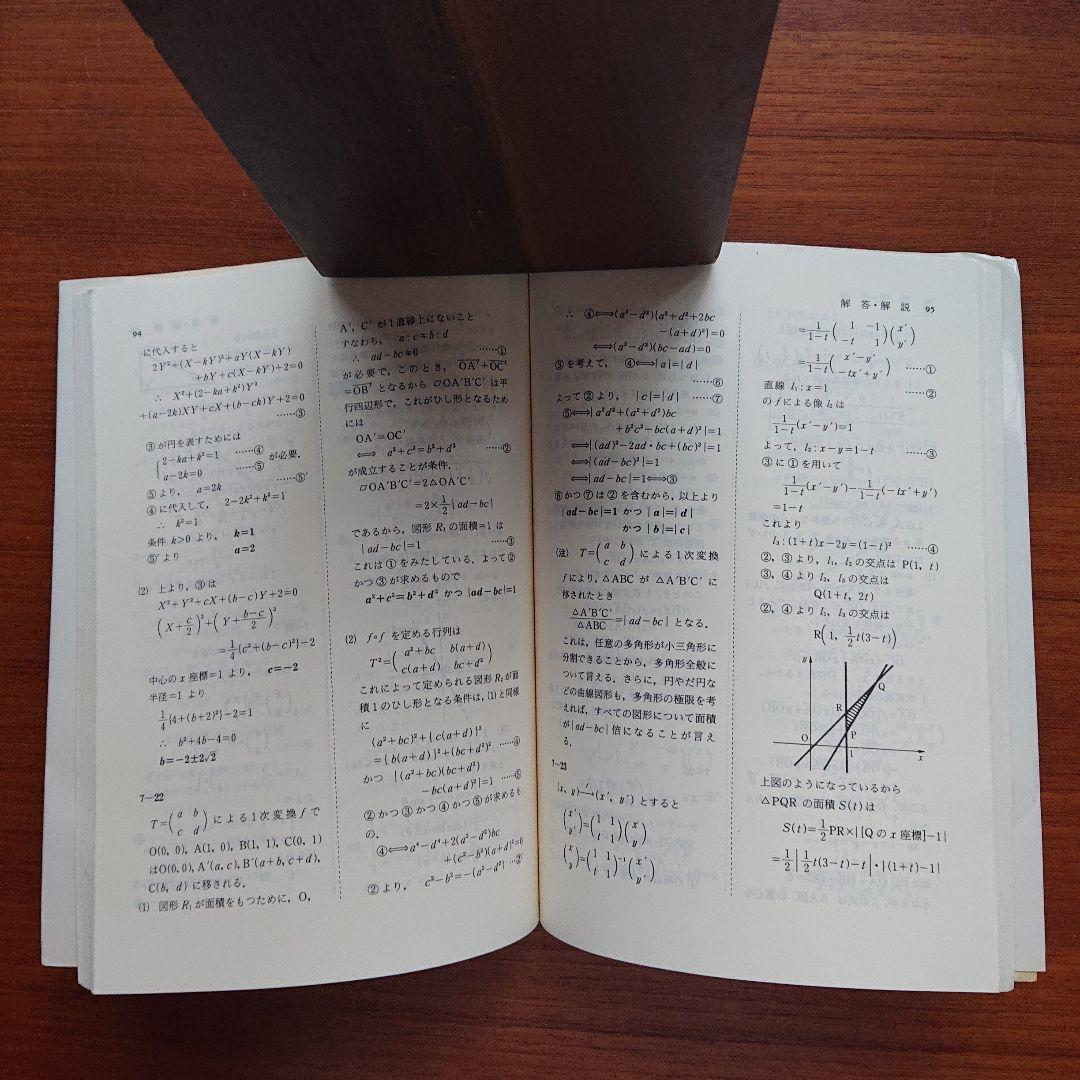 94
に代入すると
2Y²+(X−kY)²+aY(X−kY)
+bY+c(X−kY)+2=0
∴ X²+(2−ka+k²)Y²
+(a−2k)XY+cX+(b−ck)Y+2=0
……③
③が円を表すためには
{2−ka+k²=1 ……④
a−2k=0 ……⑤ が必要.
⑤より, a=2k ……⑤′
④に代入して, 2−2k²+k²=1
∴ k²=1
条件 k>0 より, k=1
⑤′より a=2
(2) 上より, ③は
X²+Y²+cX+(b−c)Y+2=0
(X+c/2)²+(Y+(b−c)/2)²
=1/4{c²+(b−c)²}−2
中心の x 座標=1 より, c=−2
半径=1 より
1/4{4+(b+2)²}−2=1
∴ b²+4b−4=0
b=−2±2√2
7−22
T=(a b
c d) による1次変換 f で
O(0, 0), A(1, 0), B(1, 1), C(0, 1)
はO(0, 0), A′(a, c), B′(a+b, c+d),
C(b, d) に移される.
(1) 図形 R₁ が面積をもつために, O,
A′, C′ が1直線上にないこと
すなわち, a : c≠b : d
∴ ad−bc≠0 ……①
が必要で, このとき, OA′+OC′
=OB′ となるから ▱OA′B′C′ は平
行四辺形で, これがひし形となるため
には
OA′=OC′
⟺ a²+c²=b²+d² ……②
が成立することが条件.
▱OA′B′C′=2△OA′C′
=2×1/2|ad−bc|
であるから, 図形 R₁ の面積=1 は
|ad−bc|=1 ……③
これは①をみたしている. よって②
かつ③が求めるもので
a²+c²=b²+d² かつ |ad−bc|=1
(2) f∘f を定める行列は
T²=(a²+bc b(a+d)
c(a+d) bc+d²)
これによって定められる図形 R₂ が面
積1のひし形となる条件は, (1)と同様
に
(a²+bc)²+{c(a+d)}²
={b(a+d)}²+(bc+d²)² ……④
かつ |(a²+bc)(bc+d²)
−bc(a+d)²|=1 ……⑤
②かつ③かつ④かつ⑤が求めるも
の.
④⟺a⁴−d⁴+2(a²−d²)bc
+(c²−b²)(a+d)²=0
②より, c²−b²=−(a²−d²) …②′
解答・解説 95
∴ ④⟺(a²−d²){a²+d²+2bc
−(a+d)²}=0
⟺(a²−d²)(bc−ad)=0
③を考えて, ④⟺|a|=|d|
……⑥
よって②より, |c|=|d| ……⑦
⑤⟺|a²d²+(a²+d²)bc
+b²c²−bc(a+d)²|=1
⟺|(ad)²−2ad・bc+(bc)²|=1
⟺|(ad−bc)²|=1
⟺|ad−bc|=1⟺③
⑥かつ⑦は②を含むから, 以上より
|ad−bc|=1 かつ |a|=|d|
かつ |b|=|c|
(注) T=(a b
c d) による1次変換
f により, △ABC が △A′B′C′ に
移されたとき
△A′B′C′/△ABC=|ad−bc| となる.
これは, 任意の多角形が小三角形に
分割できることから, 多角形全般に
ついて言える. さらに, 円やだ円な
どの曲線図形も, 多角形の極限を考
えれば, すべての図形について面積
が|ad−bc|倍になることが言え
る.
7−23
(x, y)→f(x′, y′) とすると
(x′
y′)=(1 1
t 1)(x
y)
(x
y)=(1 1
t 1)⁻¹(x′
y′)
=1/(1−t)(1 −1
−t 1)(x′
y′)
=1/(1−t)(x′−y′
−tx′+y′) ……①
直線 l₁ : x=1 ……②
の f による像 l₂ は
1/(1−t)(x′−y′)=1
よって, l₂ : x−y=1−t ……③
③に①を用いて
1/(1−t)(x′−y′)−1/(1−t)(−tx′+y′)
=1−t
これより
l₃ : (1+t)x−2y=(1−t)² ……④
②, ③より l₁, l₂ の交点は P(1, t)
③, ④より l₂, l₃ の交点は
Q(1+t, 2t)
②, ④より l₁, l₃ の交点は
R(1, 1/2t(3−t))
y
Q
R
P
O
1
x
上図のようになっているから
△PQR の面積 S(t) は
S(t)=1/2PR×|[Qの x 座標]−1|
=1/2|1/2t(3−t)−t|・|(1+t)−1|